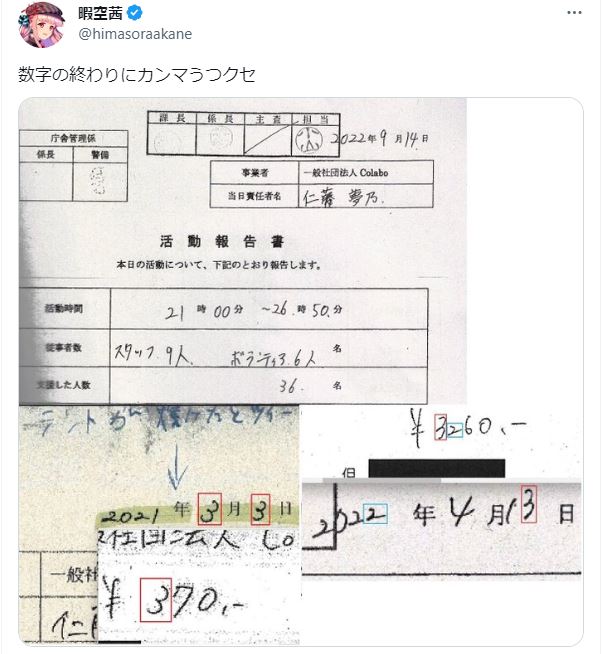 暇空茜
@himasoraakane
数字の終わりにカンマうつクセ
課長 係長 主査 担当
2022年9月14日
庁舎管理係
係長 警備
事業者 一般社団法人 Colabo
当日責任者名 仁藤 夢乃
活動報告書
本日の活動について、下記のとおり報告します。
活動時間 21時00分 ~26時50分
従事者数 スタッフ9人 ボランティア6人 名
支援した人数 36. 名
テントが
2021年3月3日
一般社
¥370.-
仁
¥3260.-
但
2022年4月13日